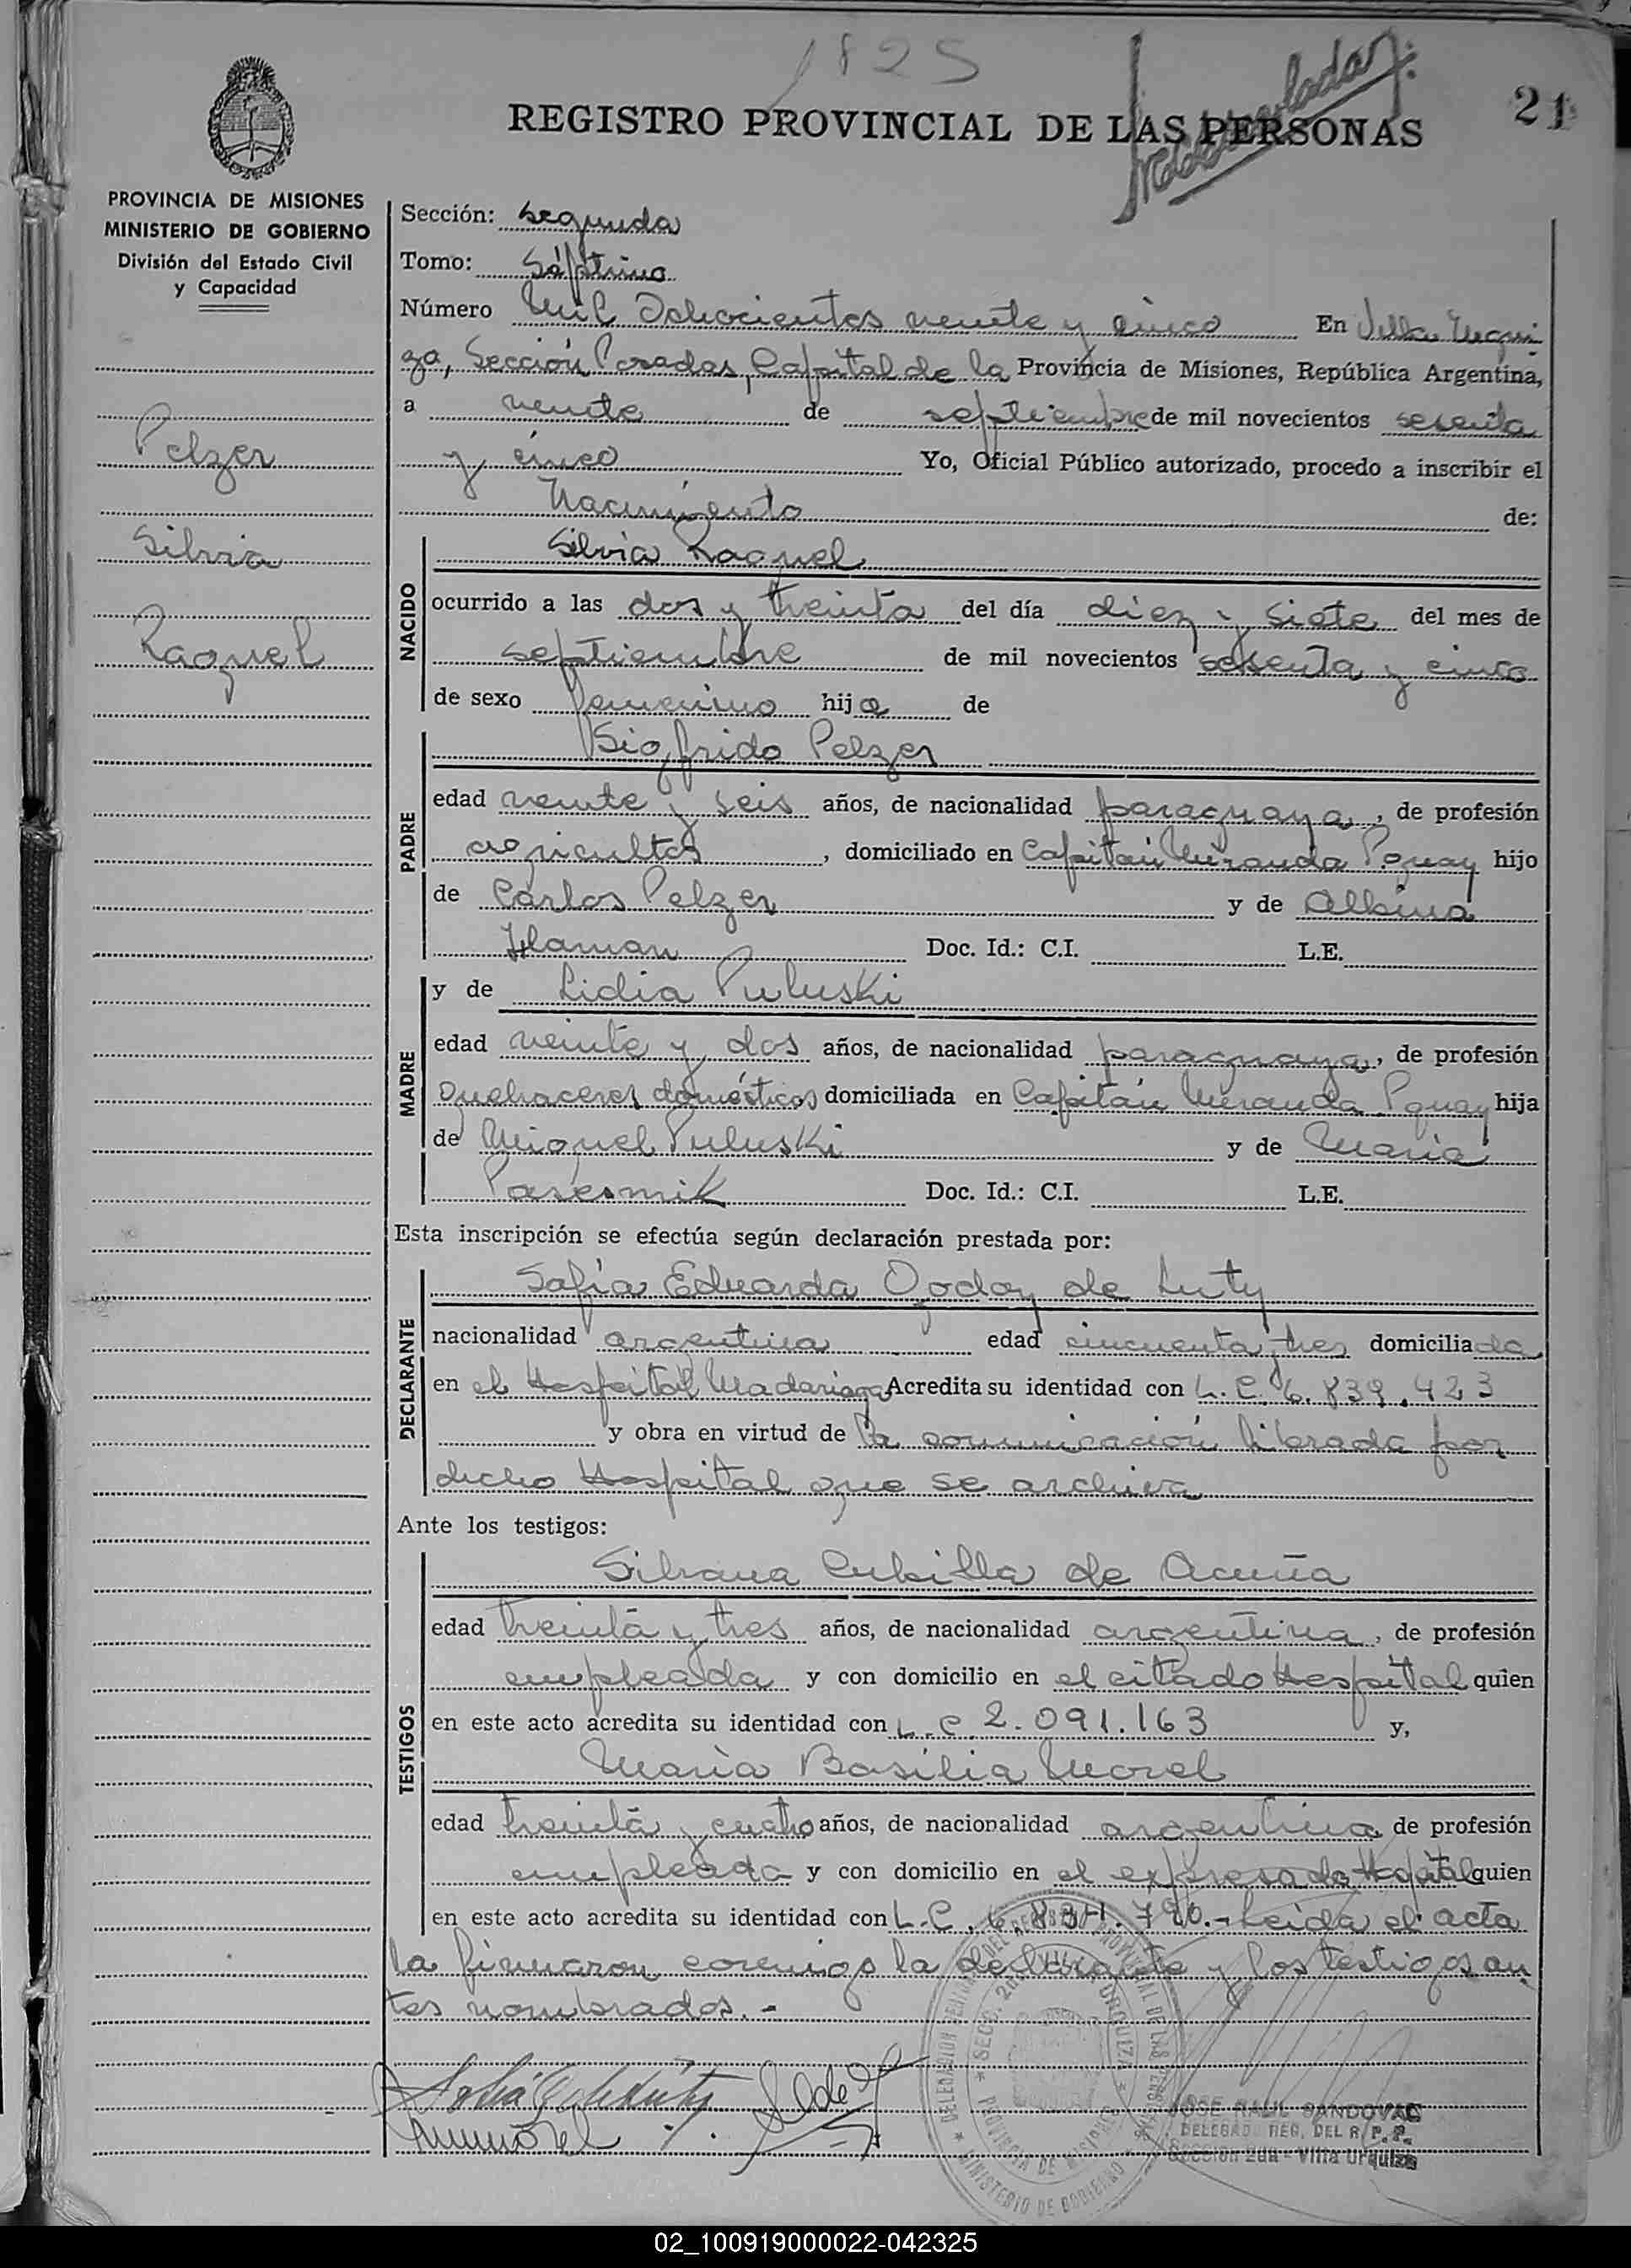 1825
REGISTRO PROVINCIAL DE LAS PERSONAS
21
PROVINCIA DE MISIONES
MINISTERIO DE GOBIERNO
División del Estado Civil
y Capacidad
Pelzer
Silvia
Raquel
Sección: Segunda
Tomo: Séptimo
Número Mil Ochocientos veinte y cinco En Villa Urqui
za, Sección Posadas, Capital de la Provincia de Misiones, República Argentina,
a veinte de septiembre de mil novecientos sesenta
y cinco Yo, Oficial Público autorizado, procedo a inscribir el
Nacimiento de:
NACIDO
Silvia Raquel
ocurrido a las dos y treinta del día diez y siete del mes de
septiembre de mil novecientos sesenta y cinco
de sexo femenino hija de
PADRE
Sigfrido Pelzer
edad veinte y seis años, de nacionalidad paraguaya, de profesión
agricultor, domiciliado en Capitán Miranda Pguay hijo
de Carlos Pelzer y de Albina
Haman Doc. Id.: C.I. L.E.
MADRE
y de Lidia Puluski
edad veinte y dos años, de nacionalidad paraguaya, de profesión
quehaceres domésticos domiciliada en Capitán Miranda Pguay hija
de Miguel Puluski y de María
Doc. Id.: C.I. L.E.
Esta inscripción se efectúa según declaración prestada por:
DECLARANTE
Sofía Eduarda Godoy de Luty
nacionalidad argentina edad cincuenta y tres domiciliada
en el Hospital Madariaga Acredita su identidad con L.C. 6.839.423
y obra en virtud de la comunicación librada por
dicho Hospital que se archiva
Ante los testigos:
TESTIGOS
Silvana Cubilla de Acuña
edad treinta y tres años, de nacionalidad argentina, de profesión
empleada y con domicilio en el citado Hospital quien
en este acto acredita su identidad con L.C 2.091.163 y,
María Basilia Morel
edad treinta y cuatro años, de nacionalidad argentina de profesión
empleada y con domicilio en el expresado Hospital quien
en este acto acredita su identidad con L.C. 6.834.790.- Leida el acta
la firmaron conmigo la declarante y los testigos an
tes nombrados.-
JOSE RAUL SANDOVAL
DELEGADO REG. DEL R.P.P.
Sección 2da - Villa Urquiza
02_100919000022-042325